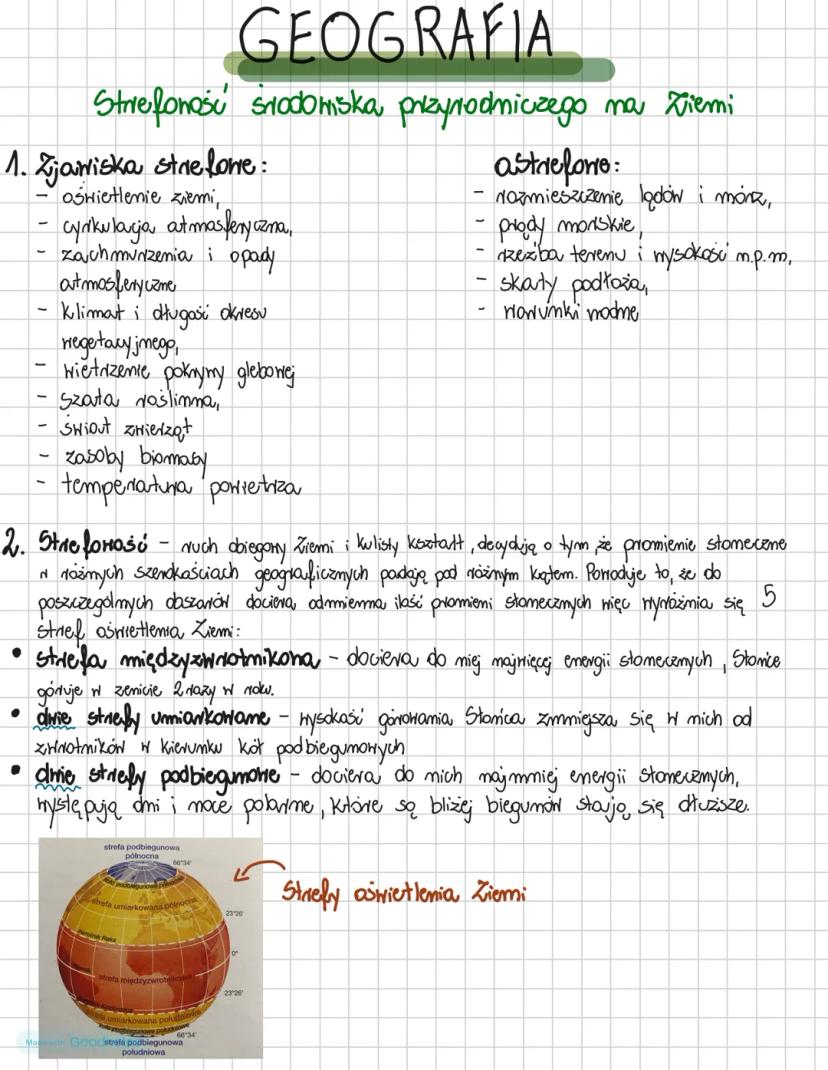 GEOGRAFIA
Strefowość środowiska przyrodniczego na Ziemi
1. Zjawiska strefowe:
- oświetlenie ziemi,
- cyrkulacja atmosferyczna,
- zachmurzenia i opady
atmosferyczne
- klimat i długość okresu
wegetacyjnego,
- wietrzenie pokrywy glebowej
- szata roślinna,
- świat zwierząt
- zasoby biomasy
- temperatura powietrza
astrefowe:
- rozmieszczenie lądów i mórz,
- prądy morskie,
- rzeźba terenu i wysokość m.p.m,
- skały podłoża,
- warunki wodne
2. Strefowość - ruch obiegowy Ziemi i kulisty kształt, decydują o tym, że promienie słoneczne
w różnych szerokościach geograficznych padają pod różnym kątem. Powoduje to, że do
poszczególnych obszarów dociera odmienna ilość promieni słonecznych więc wyróżnia się 5
stref oświetlenia Ziemi:
• strefa międzyzwrotnikowa - dociera do niej najwięcej energii słonecznych, Słońce
góruje w zenicie 2 razy w roku.
• dwie strefy umiarkowane - wysokość górowania Słońca zmniejsza się w nich od
zwrotników w kierunku kół podbiegunowych
• dwie strefy podbiegunowe - dociera do nich najmniej energii słonecznych,
występują dni i noce polarne, które są bliżej biegunów stają się dłuższe.
strefa podbiegunowa
północna
66°34'
koło podbiegunowe północne
strefa umiarkowana północna
23°26'
zwrotnik Raka
0°
równik
strefa międzyzwrotnikowa
23°26'
zwrotnik Koziorożca
strefa umiarkowana południowa
koło podbiegunowe południowe
66°34'
strefa podbiegunowa
południowa
Strefy oświetlenia Ziemi
Made with Good